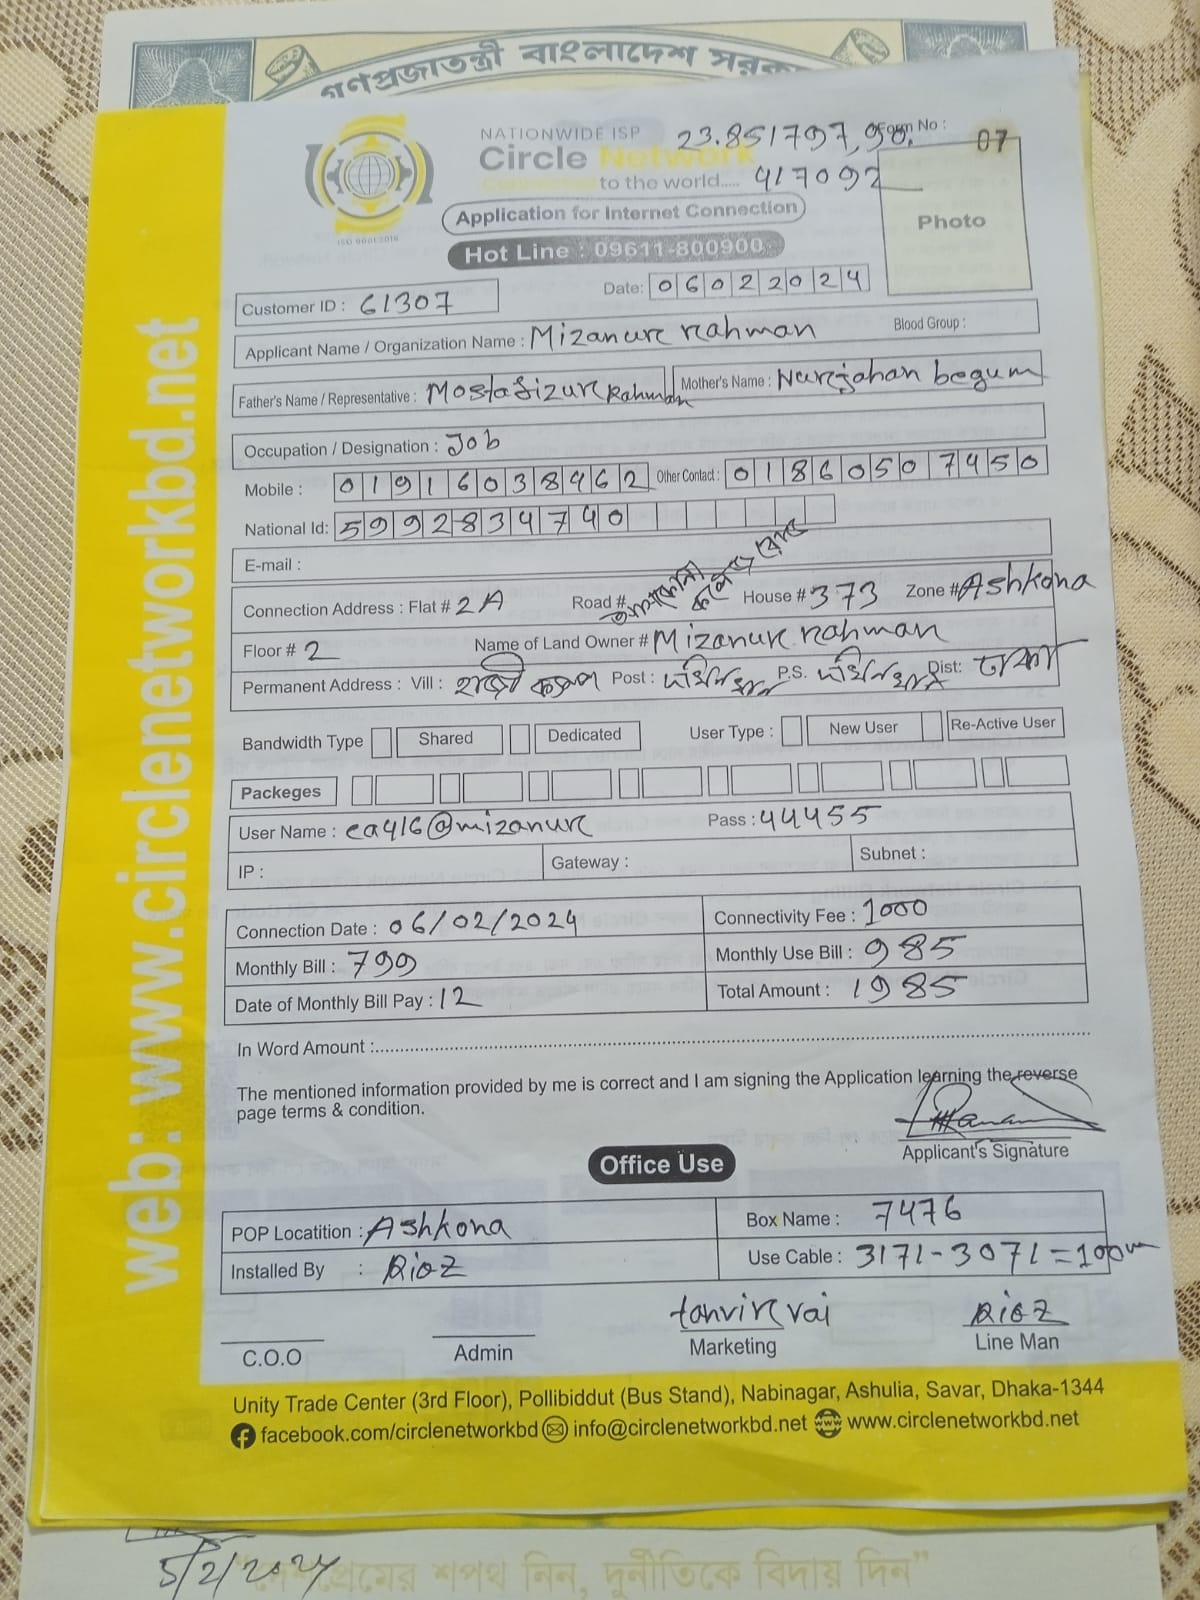 গণপ্রজাতন্ত্রী বাংলাদেশ সরকার
NATIONWIDE ISP
Circle Network
to the world.....
23.851797, 90.
417092
Form No :
07
Photo
ISO 9001:2015
Application for Internet Connection
Hot Line : 09611-800900
Customer ID : 61307
Date: 06022024
Applicant Name / Organization Name : Mizanur rahman
Blood Group :
Father's Name / Representative : Mostafizur Rahman
Mother's Name : Nurjahan begum
Occupation / Designation : Job
Mobile : 01916038462 Other Contact : 01860507450
National Id: 5992834740
E-mail :
Connection Address : Flat # 2A Road # House # 373 Zone # Ashkona
Floor # 2 Name of Land Owner # Mizanur rahman
Permanent Address : Vill : হাজী ক্যাম্প Post : দক্ষিনখান P.S. দক্ষিনখান Dist: ঢাকা
Bandwidth Type Shared Dedicated User Type : New User Re-Active User
Packeges
User Name : ca416@mizanur Pass : 44455
IP : Gateway : Subnet :
Connection Date : 06/02/2024 Connectivity Fee : 1000
Monthly Bill : 799 Monthly Use Bill : 985
Date of Monthly Bill Pay : 12 Total Amount : 1985
In Word Amount :
The mentioned information provided by me is correct and I am signing the Application learning the reverse
page terms & condition.
Applicant's Signature
Office Use
POP Locatition : Ashkona Box Name : 7476
Installed By : Rioz Use Cable : 3171-3071=100m
tanvir vai Rioz
C.O.O Admin Marketing Line Man
Unity Trade Center (3rd Floor), Pollibiddut (Bus Stand), Nabinagar, Ashulia, Savar, Dhaka-1344
facebook.com/circlenetworkbd info@circlenetworkbd.net www.circlenetworkbd.net
web: www.circlenetworkbd.net
5/2/2024
"দেশপ্রেমের শপথ নিন, দুর্নীতিকে বিদায় দিন"